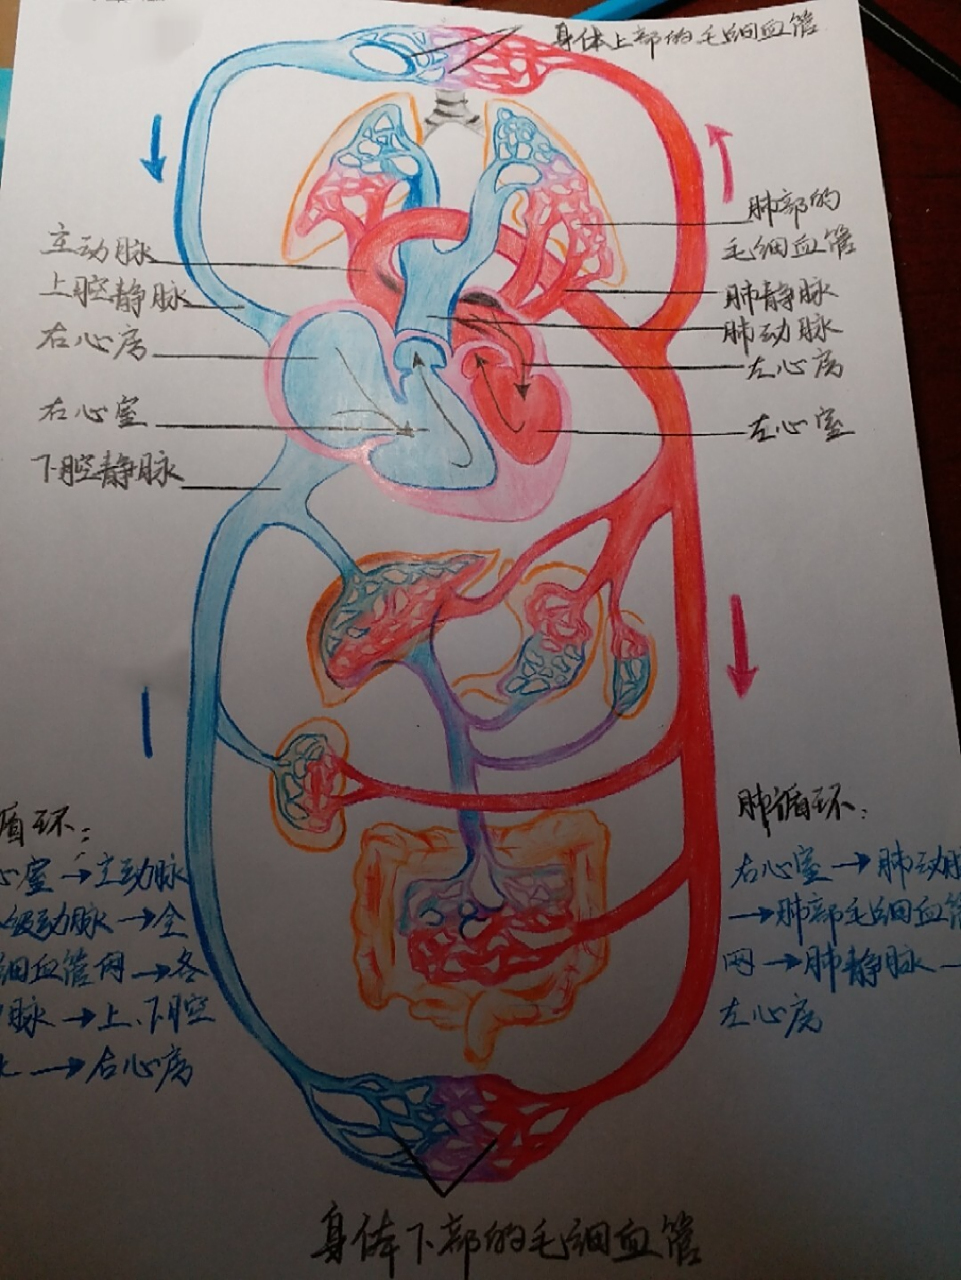 身体上部的毛细血管
主动脉
上腔静脉
右心房
右心室
下腔静脉
肺部的
毛细血管
肺静脉
肺动脉
左心房
左心室
循环：
心室→主动脉
级动脉→全
细血管网→各
脉→上、下腔
→右心房
肺循环：
右心室→肺动脉
→肺部毛细血管
网→肺静脉→
左心房
身体下部的毛细血管